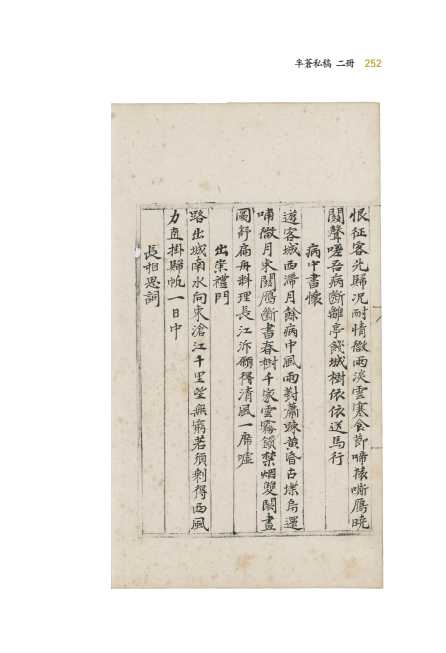 半蒼私稿 二冊 252
恨征客先歸况耐情微雨淡雲寒食節啼猿嘶鴈曉
關聲嗟吾病斷離亭餞城樹依依送馬行
病中書懷
遊客城西滯月餘病中風雨對蕭疎黃昏古堞烏還
哺微月來關鴈斷書春樹千家雲霧鎖禁烟雙闕畫
圖舒扁舟料理長江泝願得清風一席噓
出崇禮門
路出城南水向東滄江千里望無窮若須剩得西風
力直掛歸帆一日中
長相思詞